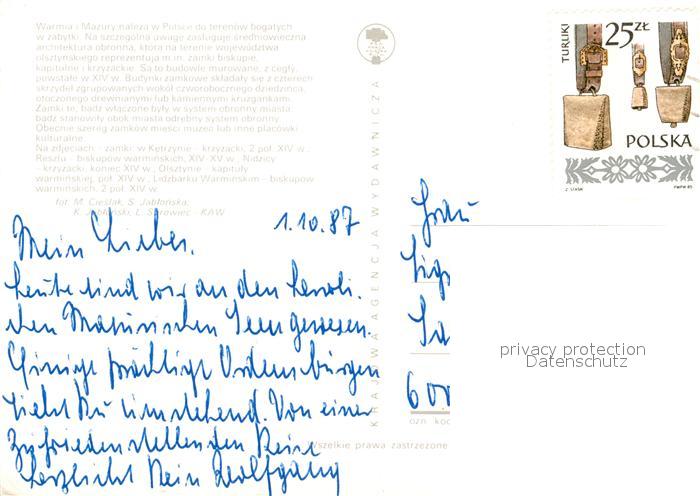 Warmia i Mazury należą w Polsce do terenów bogatych
w zabytki. Na szczególną uwagę zasługuje średniowieczna
architektura obronna, którą na terenie województwa
olsztyńskiego reprezentują m.in. zamki biskupie,
kapitulne i krzyżackie. Są to budowle murowane, z cegły,
powstałe w XIV w. Budynki zamkowe składały się z czterech
skrzydeł zgrupowanych wokół czworobocznego dziedzińca,
otoczonego drewnianymi lub kamiennymi krużgankami.
Zamki te, bądź włączone były w system obronny miasta,
bądź stanowiły obok miasta odrębny system obronny.
Obecnie szereg zamków mieści muzea lub inne placówki
kulturalne.
Na zdjęciach - zamki: w Kętrzynie - krzyżacki, 2 poł. XIV w.,
Reszlu - biskupów warmińskich, XIV-XV w., Nidzicy
- krzyżacki, koniec XIV w., Olsztynie - kapituły
warmińskiej, poł. XIV w., Lidzbarku Warmińskim - biskupów
warmińskich, 2 poł. XIV w.
fot. M. Cieślak, S. Jabłońska,
K. Jabłoński, L. Surowiec - KAW
KRAJOWA AGENCJA WYDAWNICZA
TURLIKI
25 ZŁ
POLSKA
1.10.87
Mein Lieber,
heute sind wir an den herrli-
chen Masurischen Seen gewesen.
Einige prächtige Ordensburgen
siehst Du umstehend. Von einer
zufriedenstellenden Reise
herzlichst Dein Wolfgang
Frau
600
ozn. kod
Wszelkie prawa zastrzeżone
privacy protection
Datenschutz